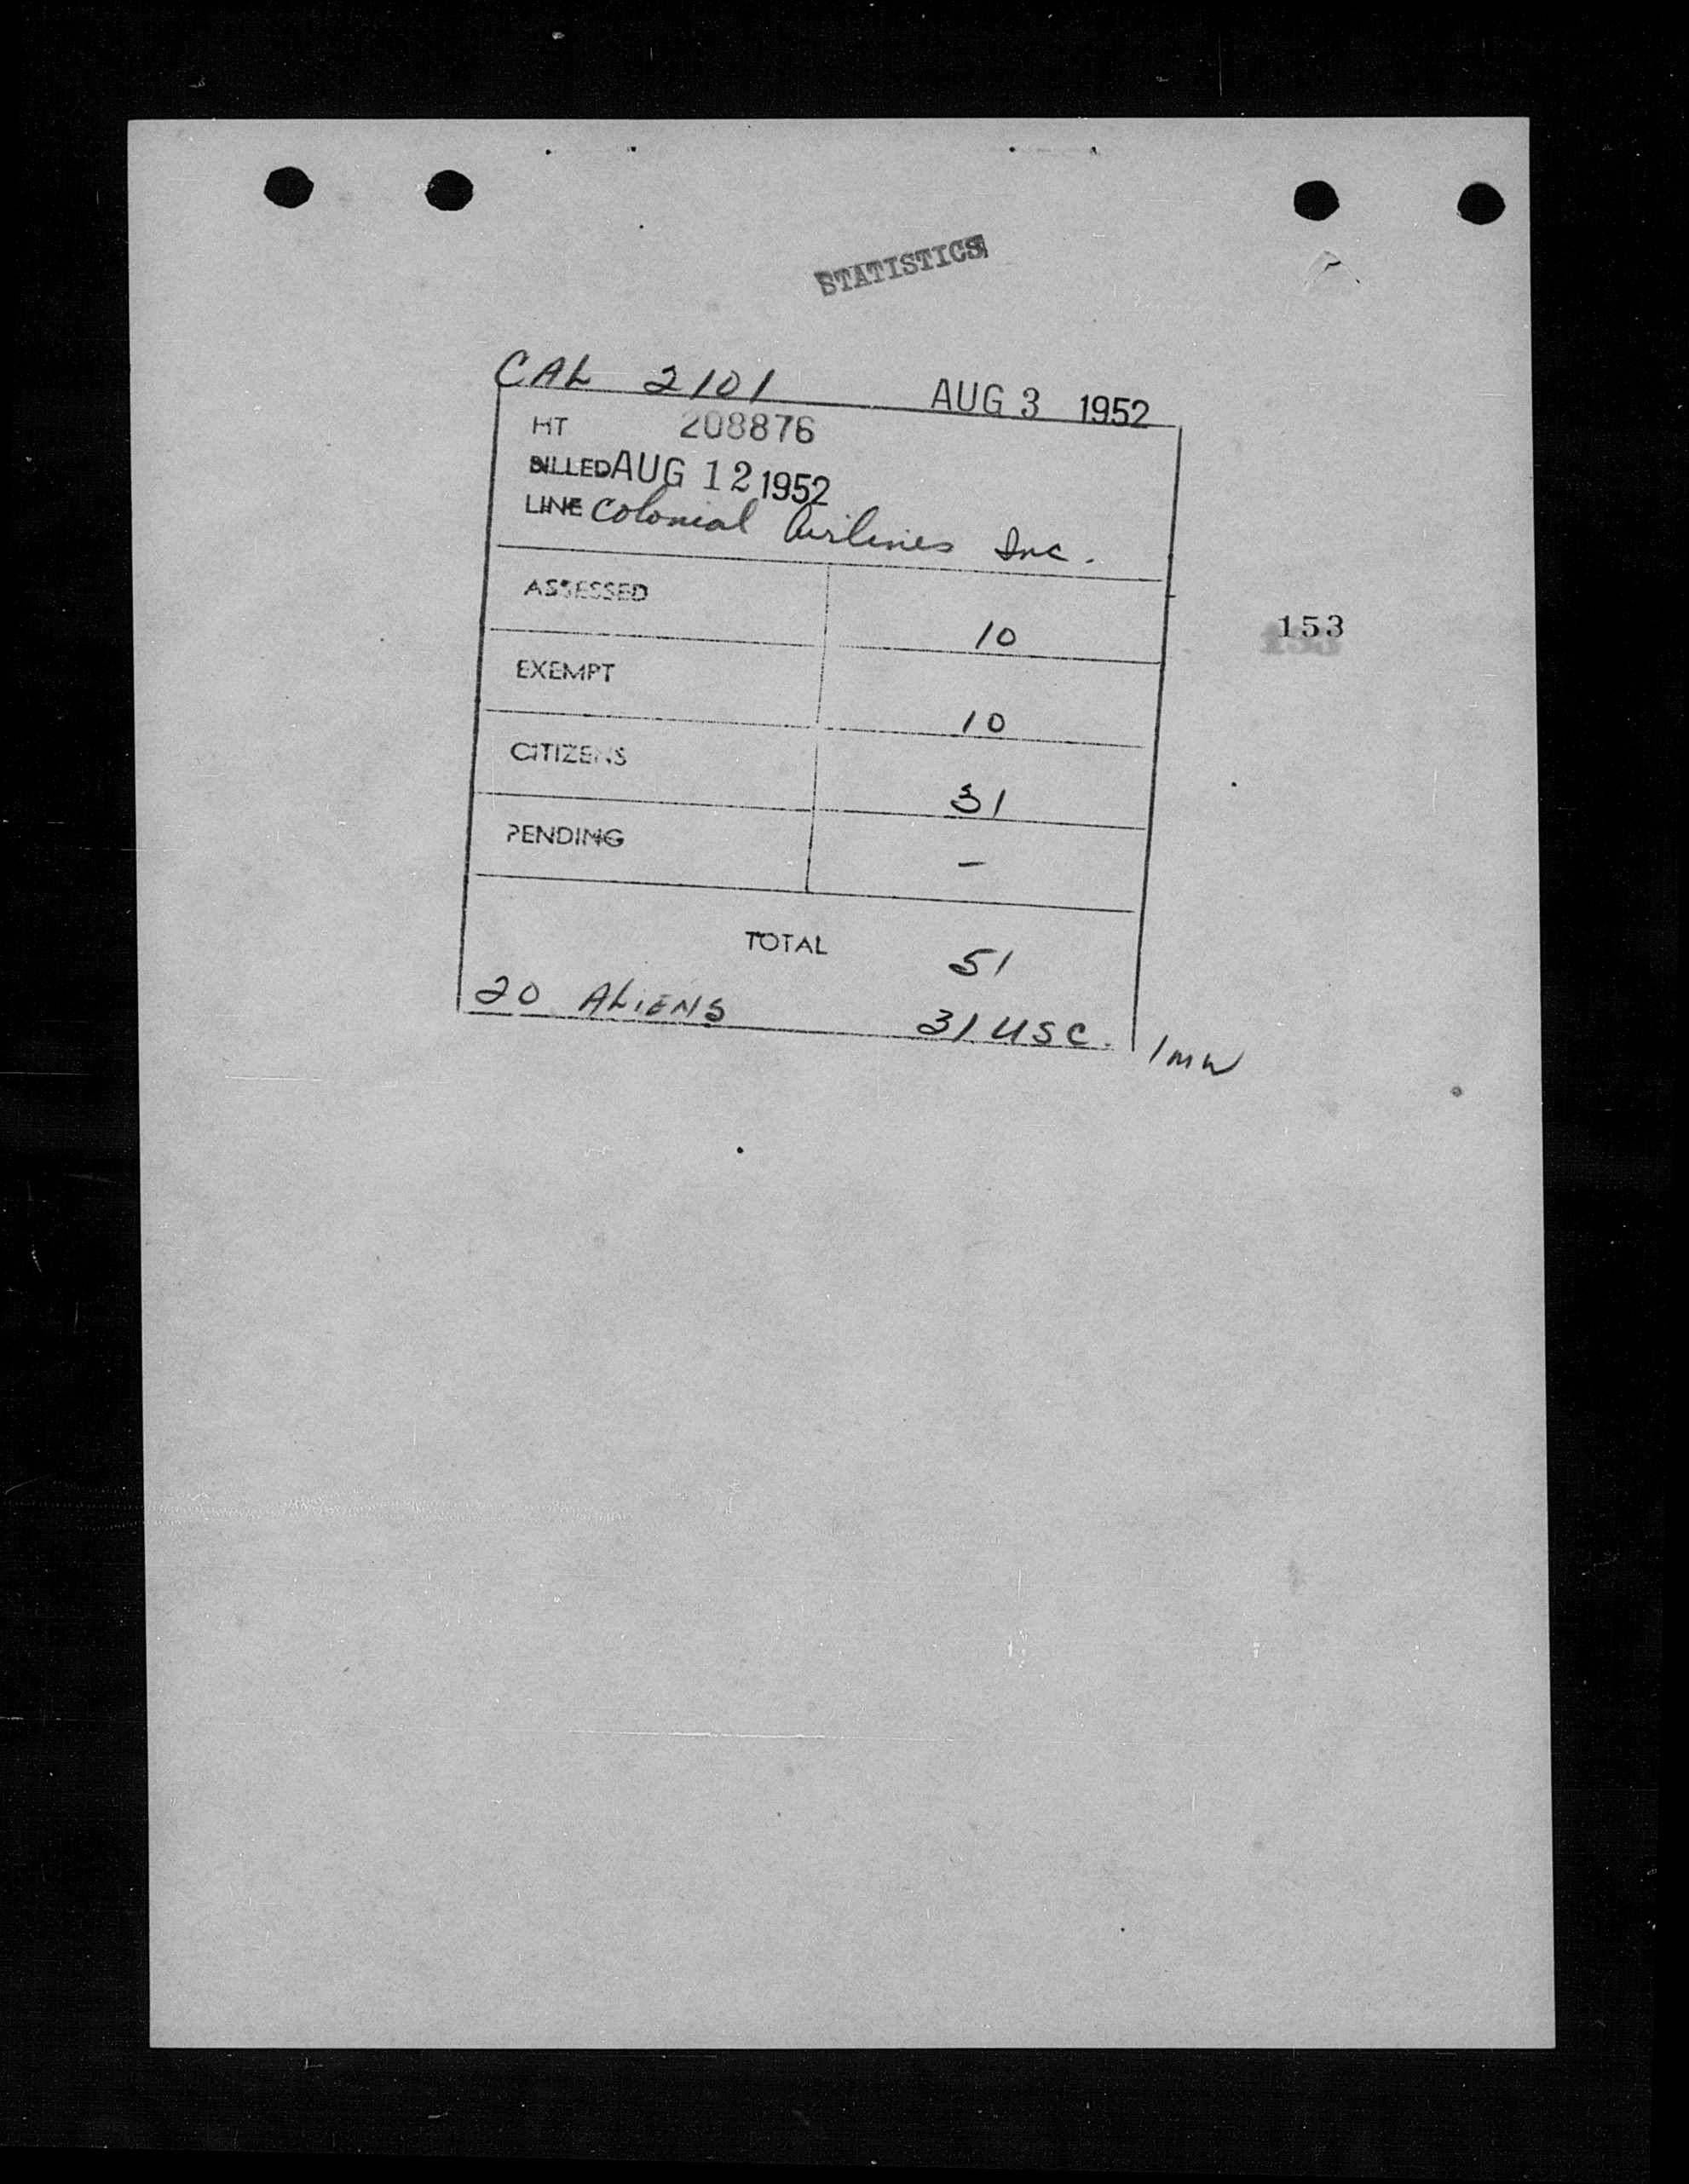 STATISTICS
CAL 2101 AUG 3 1952
HT 208876
BILLED AUG 12 1952
LINE Colonial Airlines Inc.
ASSESSED 10
153
EXEMPT 10
CITIZENS 31
PENDING –
TOTAL 51
20 ALIENS 31 USC.